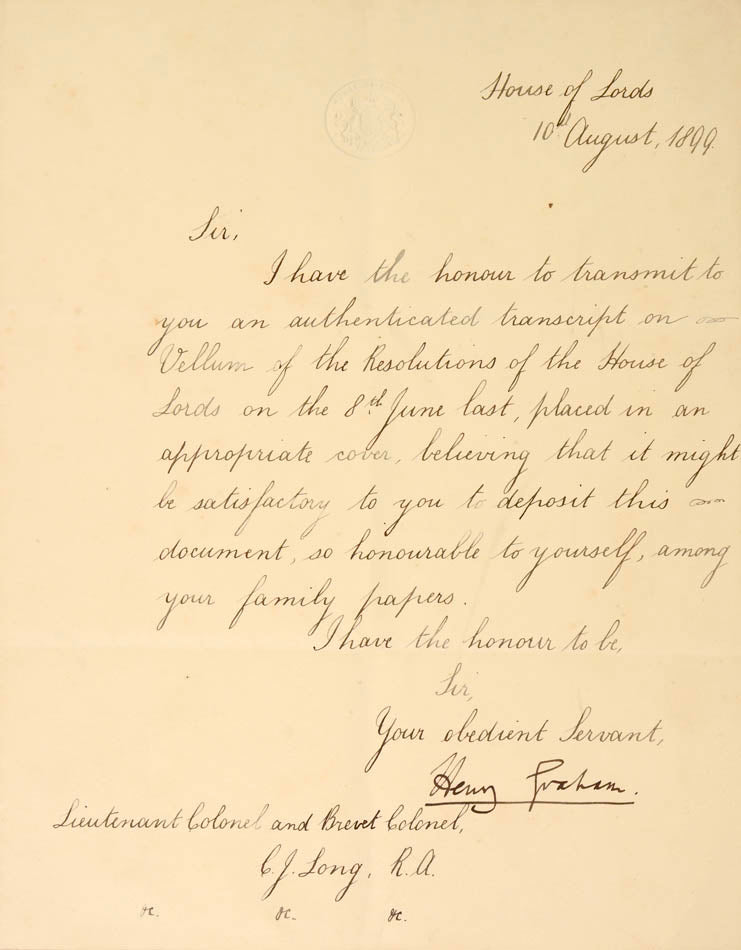 House of Lords
10th August, 1899.
Sir,
I have the honour to transmit to
you an authenticated transcript on
Vellum of the Resolutions of the House of
Lords on the 8th June last, placed in an
appropriate cover, believing that it might
be satisfactory to you to deposit this
document, so honourable to yourself, among
your family papers.
I have the honour to be,
Sir,
Your obedient Servant,
Henry Graham.
Lieutenant Colonel and Brevet Colonel,
C. J. Long, R.A.
&c. &c. &c.